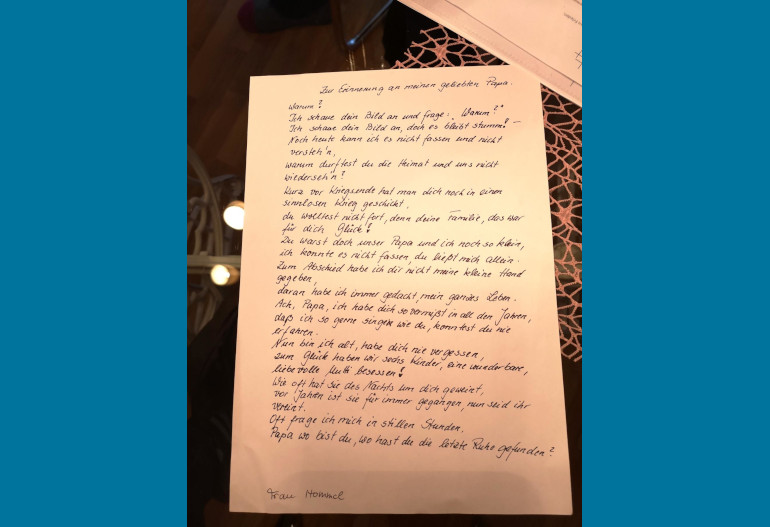 Zur Erinnerung an meinen geliebten Papa.
Warum?
Ich schaue dein Bild an und frage: „Warum?"
Ich schaue dein Bild an, doch es bleibt stumm! –
Noch heute kann ich es nicht fassen und nicht
versteh'n,
warum durftest du die Heimat und uns nicht
wiederseh'n?
Kurz vor Kriegsende hat man dich noch in einen
sinnlosen Krieg geschickt,
du wolltest nicht fort, denn deine Familie, das war
für dich Glück!
Du warst doch unser Papa und ich noch so klein,
ich konnte es nicht fassen, du ließt mich allein.
Zum Abschied habe ich dir nicht meine kleine Hand
gegeben,
daran habe ich immer gedacht, mein ganzes Leben.
Ach, Papa, ich habe dich so vermißt in all den Jahren,
daß ich so gerne singe wie du, konntest du nie
erfahren.
Nun bin ich alt, habe dich nie vergessen,
zum Glück haben wir sechs Kinder, eine wunderbare,
liebevolle Mutti besessen!
Wie oft hat sie des Nachts um dich geweint,
vor Jahren ist sie für immer gegangen, nun seid ihr
vereint.
Oft frage ich mich in stillen Stunden.
Papa wo bist du, wo hast du die letzte Ruhe gefunden?
Frau Hommel